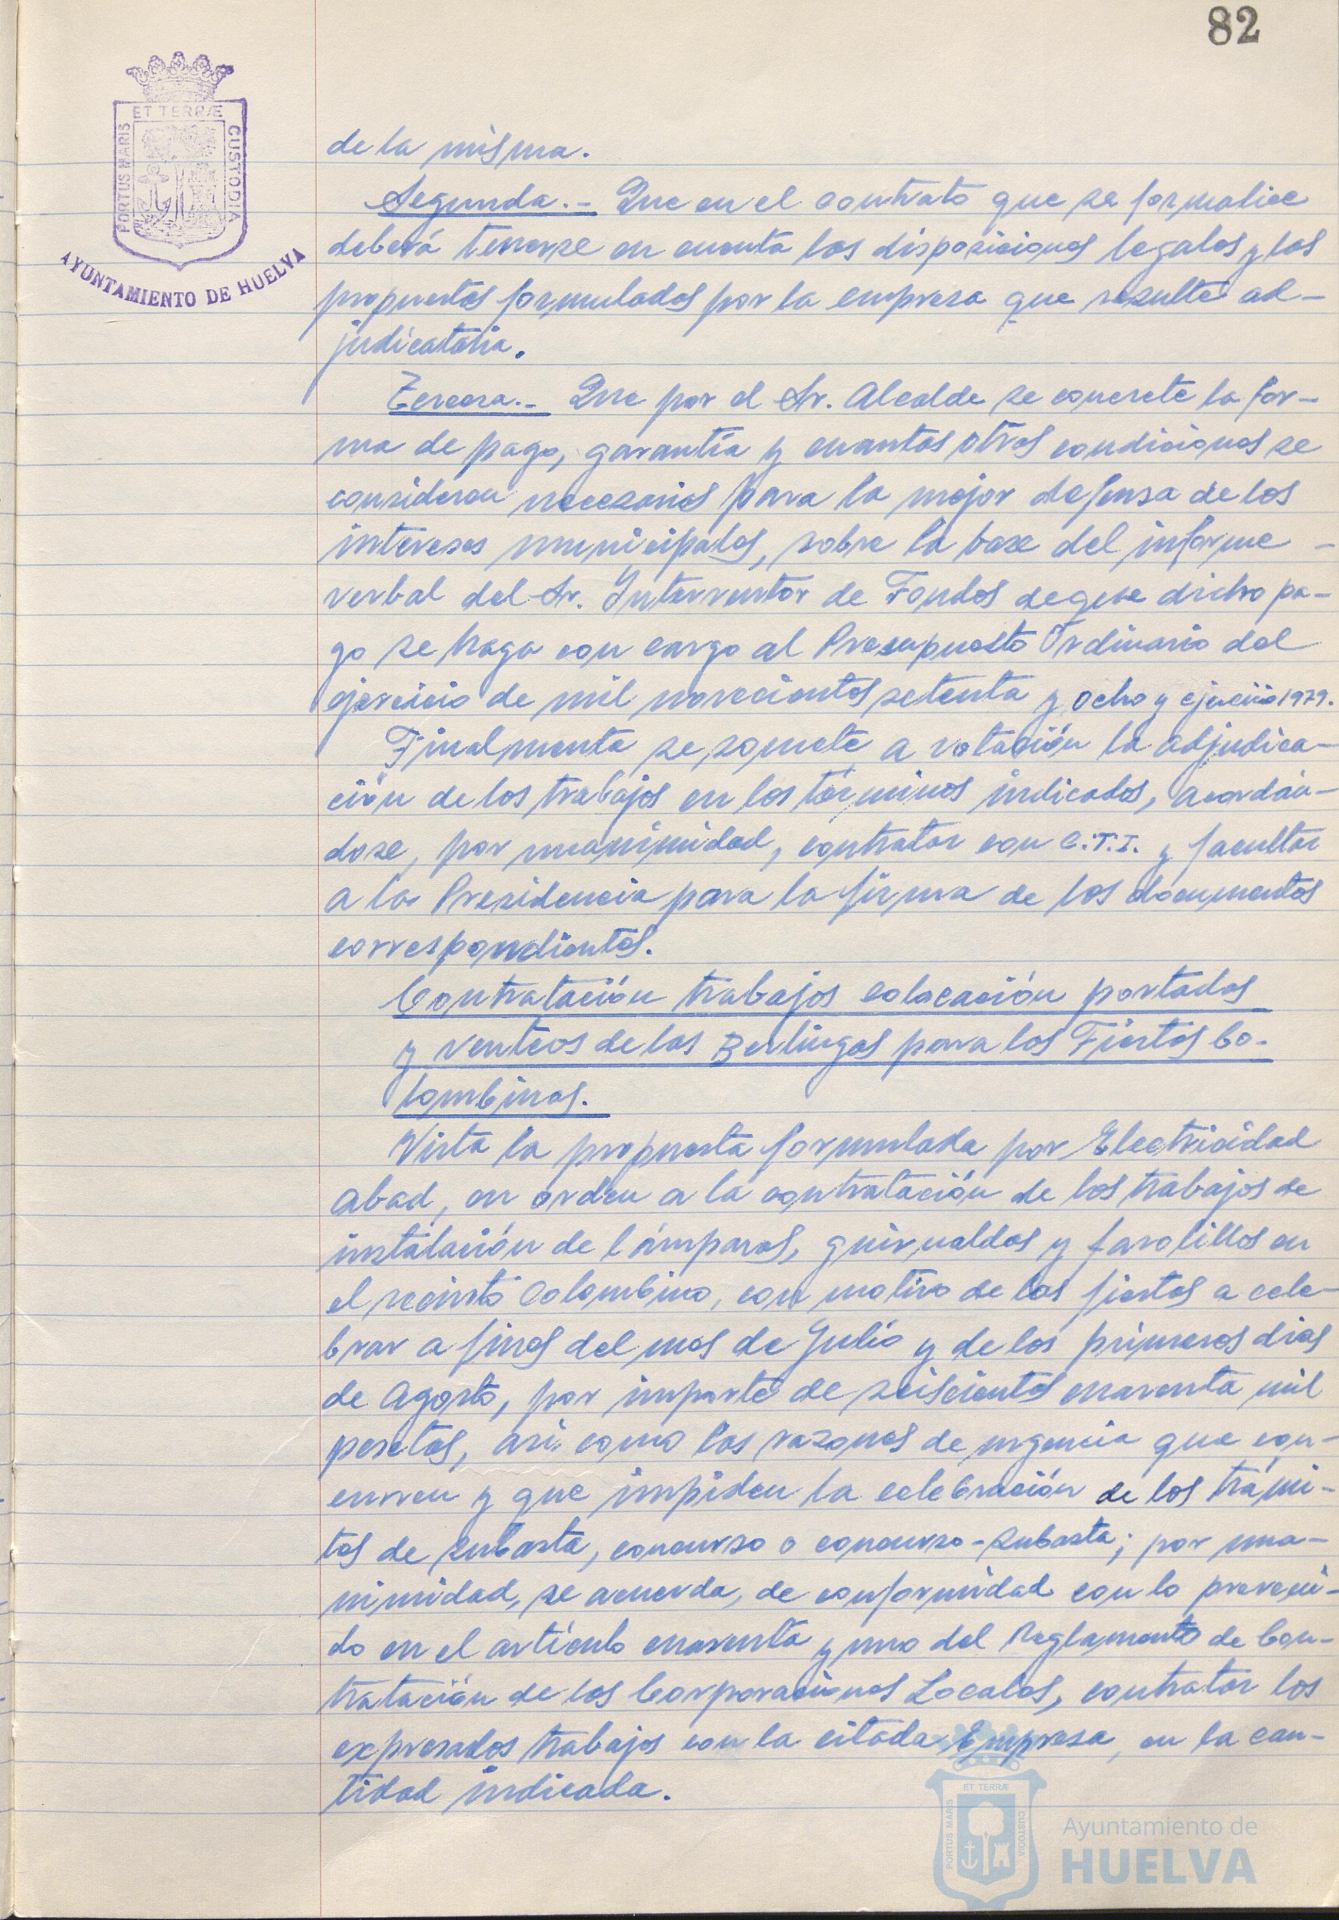 82
ET TERRÆ
PORTUS MARIS
CUSTODIA
AYUNTAMIENTO DE HUELVA
de la misma.
Segunda.- Que en el contrato que se formalice
deberá tenerse en cuenta las disposiciones legales y las
propuestas formuladas por la empresa que resulte ad-
judicataria.
Tercera.- Que por el Sr. Alcalde se concrete la for-
ma de pago, garantía y cuantas otras condiciones se
consideren necesarias para la mejor defensa de los
intereses municipales, sobre la base del informe -
verbal del Sr. Interventor de Fondos de que dicho pa-
go se haga con cargo al Presupuesto Ordinario del
ejercicio de mil novecientos setenta y ocho y ejercicio 1979.
Finalmente se somete a votación la adjudica-
ción de los trabajos en los términos indicados, acordán-
dose, por unanimidad, contratar con C.T.I. y facultar
a la Presidencia para la firma de los documentos
correspondientes.
Contratación trabajos colocación portadas
y venteos de las Berlingas para las Fiestas Co-
lombinas.
Vista la propuesta formulada por Electricidad
Abad, en orden a la contratación de los trabajos de
instalación de lámparas, guirnaldas y farolillos en
el recinto Colombino, con motivo de las fiestas a cele-
brar a fines del mes de Julio y de los primeros días
de Agosto, por importe de seiscientas cuarenta mil
pesetas, así como las razones de urgencia que con-
curren y que impiden la celebración de los trámi-
tes de subasta, concurso o concurso-subasta; por una-
nimidad, se acuerda, de conformidad con lo preveni-
do en el artículo cuarenta y uno del Reglamento de Con-
tratación de las Corporaciones Locales, contratar los
expresados trabajos con la citada Empresa, en la can-
tidad indicada.
ET TERRÆ
PORTUS MARIS
CUSTODIA
Ayuntamiento de
HUELVA